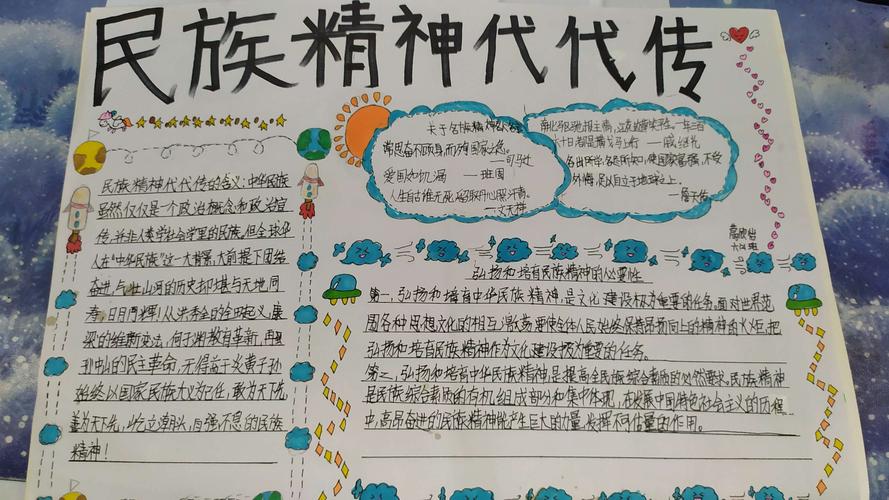 民族精神代代传
民族精神代代传的含义:中华民族
虽然仅仅是一个政治概念和政治宣
传,并非人类学社会学里的民族。但全球华
人在"中华民族"这一大背景、大前提下团结
奋进,与壮山河的历史却堪与天地同
寿、日月同辉!从洪秀全的金田起义,康
梁的维新变法,何子渊教育革新,再到
孙中山的民主革命,无得益于炎黄子孙
始终以国家民族大义为己任,敢为天下先,
善为天下先,屹立潮头,自强不息的民族
精神!
关于名族精神的名言
常思奋不顾身,而殉国家之急。
——司马迁
爱国如饥渴 ——班固
人生自古谁无死,留取丹心照汗青。
——文天祥
南北驱驰报主情,江花边草笑平生。一年三百
六十日,都是横戈马上行 ——戚继光
各出所学,各尽所知,使国家富强,不受
外侮,足以自立于地球之上。
——詹天佑
六(4)班
弘扬和培育民族精神的必要性
第一,弘扬和培育中华民族精神,是文化建设极为重要的任务。面对世界范
围各种思想文化的相互激荡,要使全体人民始终保持昂扬向上的精神的火炬,把
弘扬和培育民族精神作为文化建设极为重要的任务。
第二,弘扬和培育中华民族精神,是提高全民族综合素质的必然要求。民族精神
是民族综合素质的有机组成部分和集中体现,在发展中国特色社会主义的历程
中,高昂奋进的民族精神能产生巨大的力量,发挥不可估量的作用。